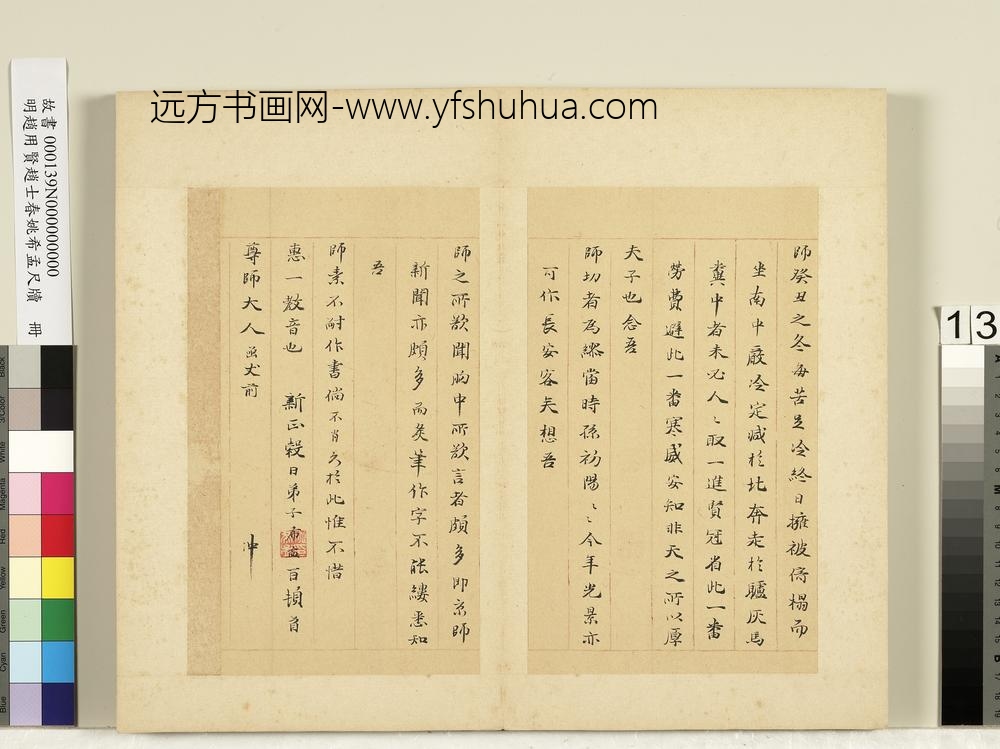 远方书画网-www.yfshuhua.com
故書 000139N000000000
明趙用賢趙士春姚希孟尺牘 冊
師癸丑之冬每苦足冷終日擁被倚榻而
坐南中嚴冷定減於北奔走於驢灰馬
糞中者未必人〻取一進賢冠省此一番
勞費避此一番寒威安知非天之所以厚
夫子也念吾
師切者為縱當時孫初陽〻〻今年光景亦
可作長安客矣想吾
師之所欲聞胸中所欲言者頗多即京師
新聞亦頗多而矣筆作字不能縷悉知
吾
師素不耐作書倘不肖之於此惟不惜
惠一教音也 新正穀日弟子希孟百頓首
尊師大人函丈前
冲
13
Black
3/Color
White
Magenta
Red
Yellow
Green
Cyan
Blue
A
M
B